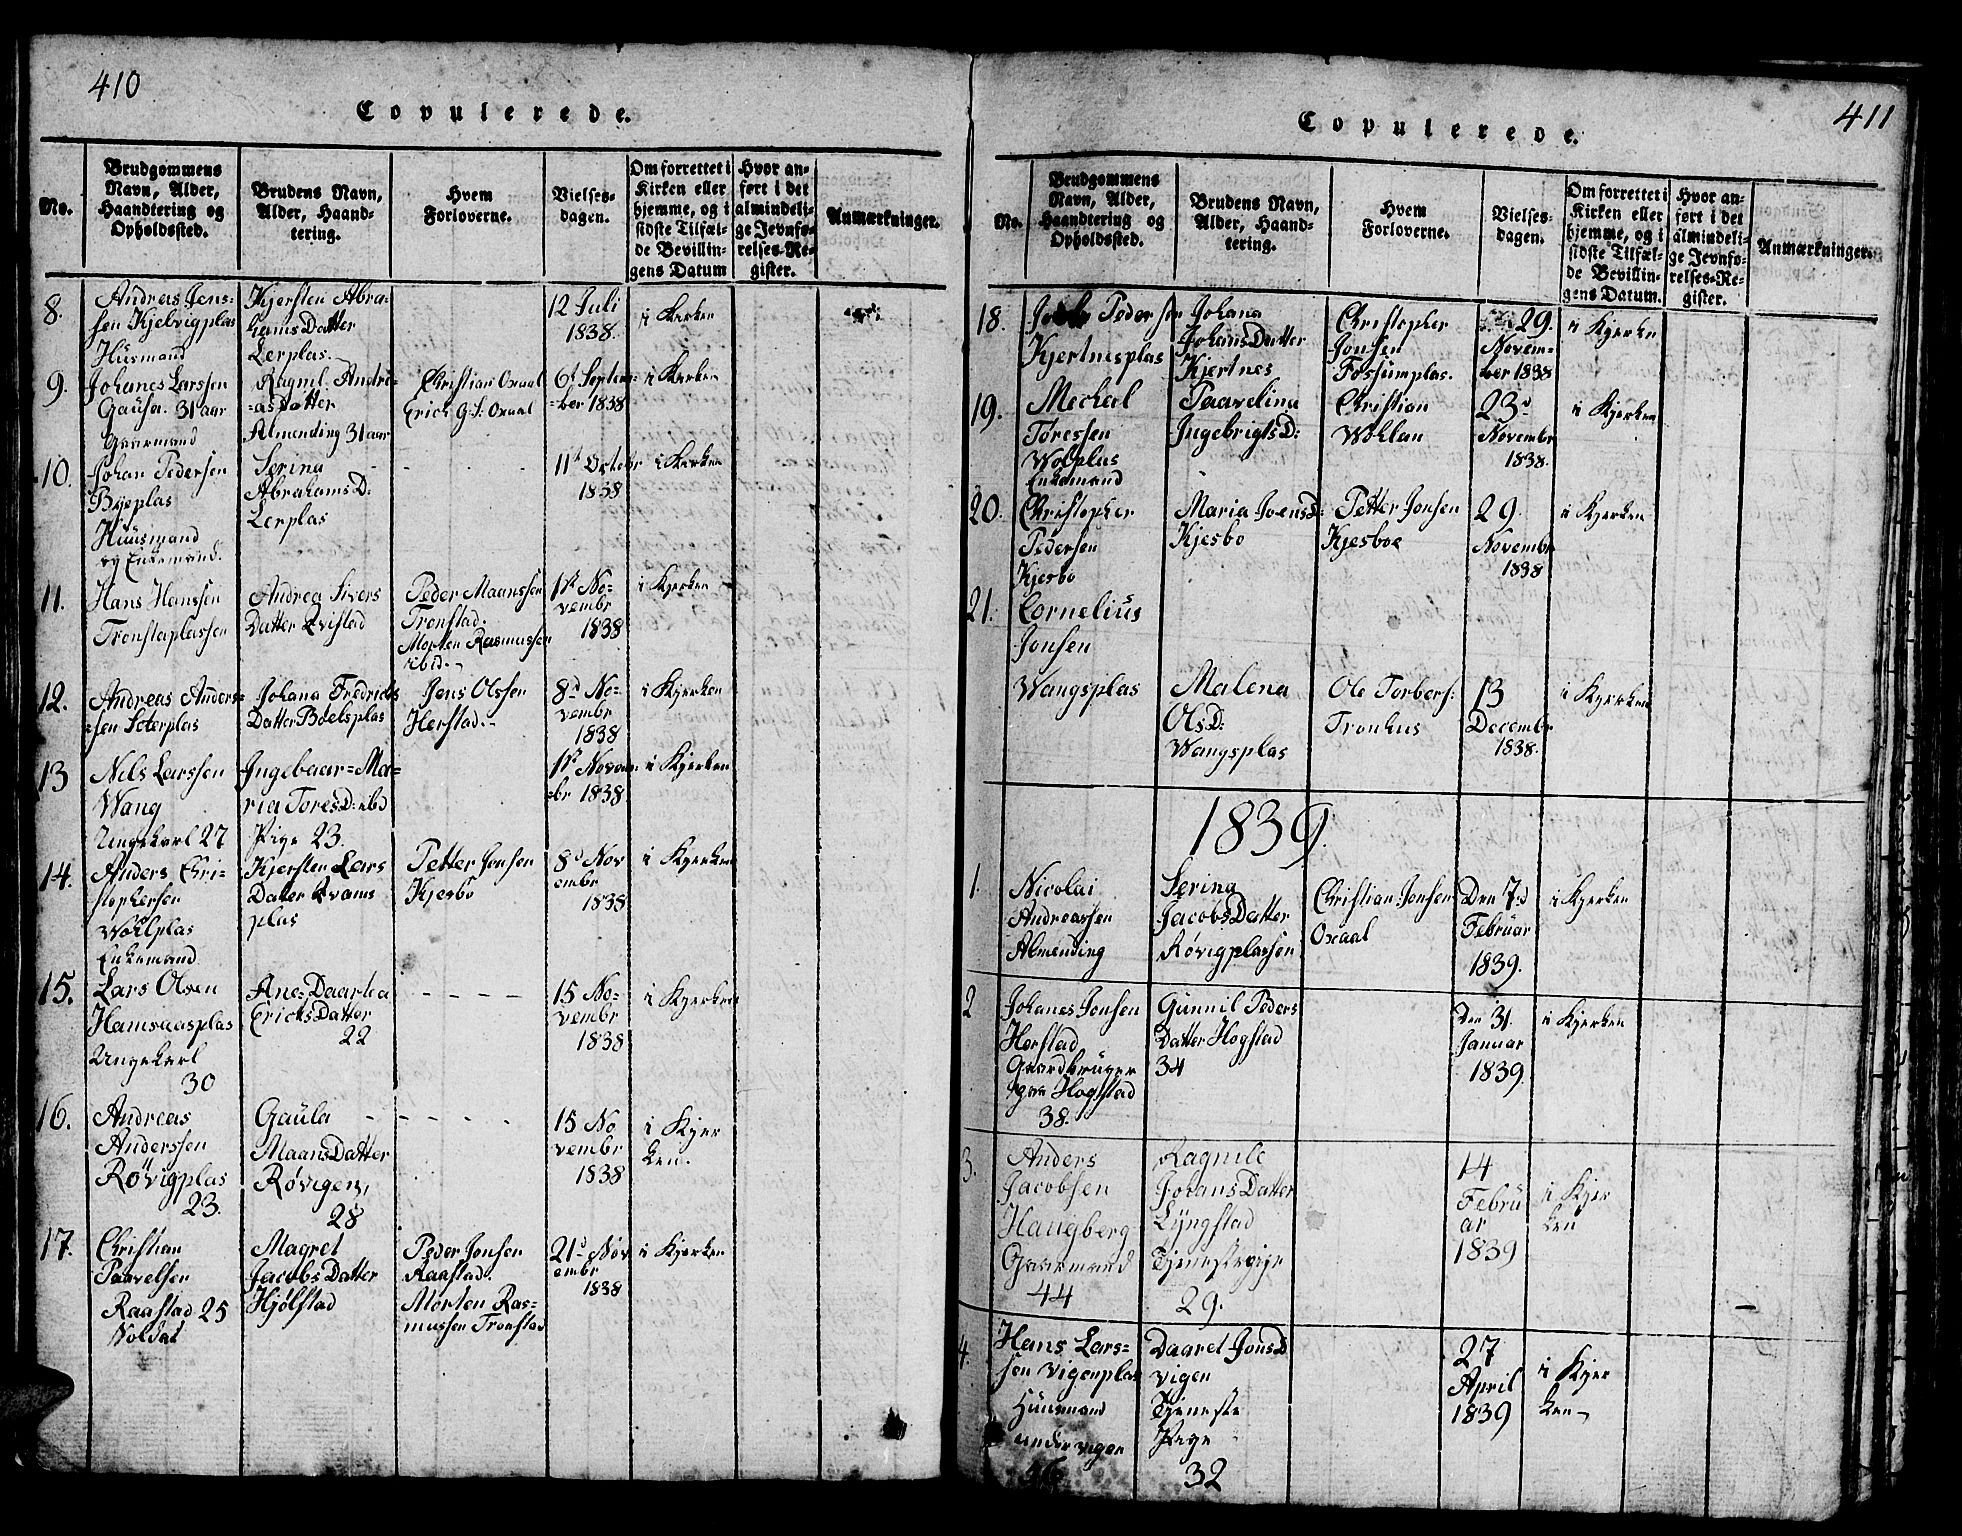 410
Copulerede.
No.
Brudgommens
Navn, Alder,
Haandtering og
Opholdssted.
Brudens Navn,
Alder, Haand-
tering.
Hvem
Forloverne.
Vielses-
dagen.
Om forrettet i
Kirken eller
hjemme, og i
sidste Tilfæl-
de Bevillin-
gens Datum
Hvor an-
ført i det
almindeli-
ge Jevnfø-
relses-Re-
gister.
Anmærkninger.
8.
Andreas Jens-
sen Kjelvigplas
Huusmand
Kjersten Abra-
hams Datter
Lerplas.
12 Juli
1838.
i Kerken
9.
Johanes Larssen
Gausa. 31 aar
Gaarmand
Ragnil Andre-
=as Datter
Almending 31 aar
Christian Oxaal
Erick G. S. Oxaal
6t Septem=
=ber 1838
i Kerken
10.
Johan Pedersen
Byeplas
Huusmand
og Enkemand.
Serina
Abrahams D:
Lerplas
11t Octobr
1838
i Kerken
11.
Hans Hanssen
Tronstaplassen
Andrea Sivers
Datter Qvistad
Peder Maanssen
Tronstad.
Morten Rasmussen
ibid.
1st No-
vembr
1838
i Kjerken
12.
Andreas Anders-
=sen Seterplas
Johana Fredriks
Datter Boelsplas
Jens Olssen
Herstad.-
8d No-
vembr
1838
i Kjerken
13
Nils Larssen
Wang
Ungekarl 27
Ingebaar=Ma=
ria Tores D: ibd
Pige 23.
1st Novem
=br 1838
i Kjerken
14.
Anders Chri-
stophersen
Wohlplas
Enkemand
Kjersten Lars
Dater Qvams
plas
Petter Jonsen
Kjesbo
8d Nov
embr
1838
i Kjerken
15.
Lars Olsen
Hamsaasplas
Ungekarl
30
Ane=Daartea
Ericks Datter
22
15 No-
vembr
1838
i Kjerken
16.
Andreas
Anderssen
Røvigplas
23.
Gaula
Maans Datter
Røvigen,
28
15 No
vembr
1838
i Kjer
ken.
17.
Christian
Paavelsen
Raastad 25
Soldat
Magret
Jacobs Datter
Hjølstad
Peder Jonsen
Raastad.
Morten Ras=
mussen Tronstad
21d Nov
embr
1838
i Kjerken
411
Copulerede.
No.
Brudgommens
Navn, Alder,
Haandtering og
Opholdssted.
Brudens Navn,
Alder, Haand-
tering.
Hvem
Forloverne.
Vielses-
dagen.
Om forrettet i
Kirken eller
hjemme, og i
sidste Tilfæl-
de Bevillin-
gens Datum.
Hvor an-
ført i det
almindeli-
ge Jevnfø-
relses-Re-
gister.
Anmærkninger.
18.
Pedersen
Kjertnesplas
Johana
Johans Datter
Kjertnes
Christopher
Jonsen
Fossumplas.
29.
Novem-
ber 1838
i Kjerken
19.
Mechal
Toressen
Wolplas
Enkemand
Paavelina
Ingebrigts D:
Christian
Wohlan
23d
Novembr
1838.
i Kjerken
20.
Christopher
Pedersen
Kjesbo
Maria Joens D:
Kjesbo
Petter Jonsen
Kjesboe
29
Novembr
1838
i Kjerken
21.
Cornelius
Jonsen
Wangsplas
Malena
Ols D:
Wangsplas
Ole Torbers:
Tronhus
13
Decembr
1838.
i Kjerken
1839.
1.
Nicolai
Andreassen
Almending
Serina
Jacobs Datter
Røvigplassen
Christian Jonsen
Oxaal
Den 7:d
Februar
1839.
i Kjerken
2
Johanes Jonsen
Herstad
Gaardbruger
paa Hogstad
38.
Gunnil Peders
Datter Hogstad
34
Den 31.
Januar
1839.
i Kjerken
3.
Anders
Jacobsen
Haugberg
Gaarmand
44
Ragnile
Johans Datter
Lyngstad
Tjenestepige
29.
14
Febru
ar
1839
i Kjer
ken
4.
Hans Lars=
sen Vigenplas
Huusmand
under vigen
46
Daaret Jons D
vigen
Tjeneste
Pige
32
27
April
1839
i Kjer
ken